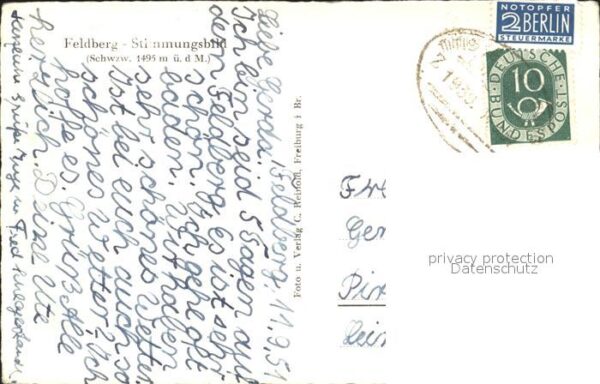 Feldberg - Stimmungsbild
(Schwzw. 1495 m ü. d M.)
Feldberg, 11.9.51
Liebe Gerda!
Ich bin seid 5 Tagen auf
dem Feldberg. Es ist sehr
schön. Ich gehe oft
baden. Wir haben
sehr schönes Wetter.
Ist bei euch auch so
schönes Wetter? Ich
hoffe es. Grüße Alle
herzlich Deine Ute
Foto u. Verlag C. Reinold, Freiburg i Br.
NOTOPFER
2 BERLIN
STEUERMARKE
DEUTSCHE
10
BUNDESPOST
privacy protection
Datenschutz